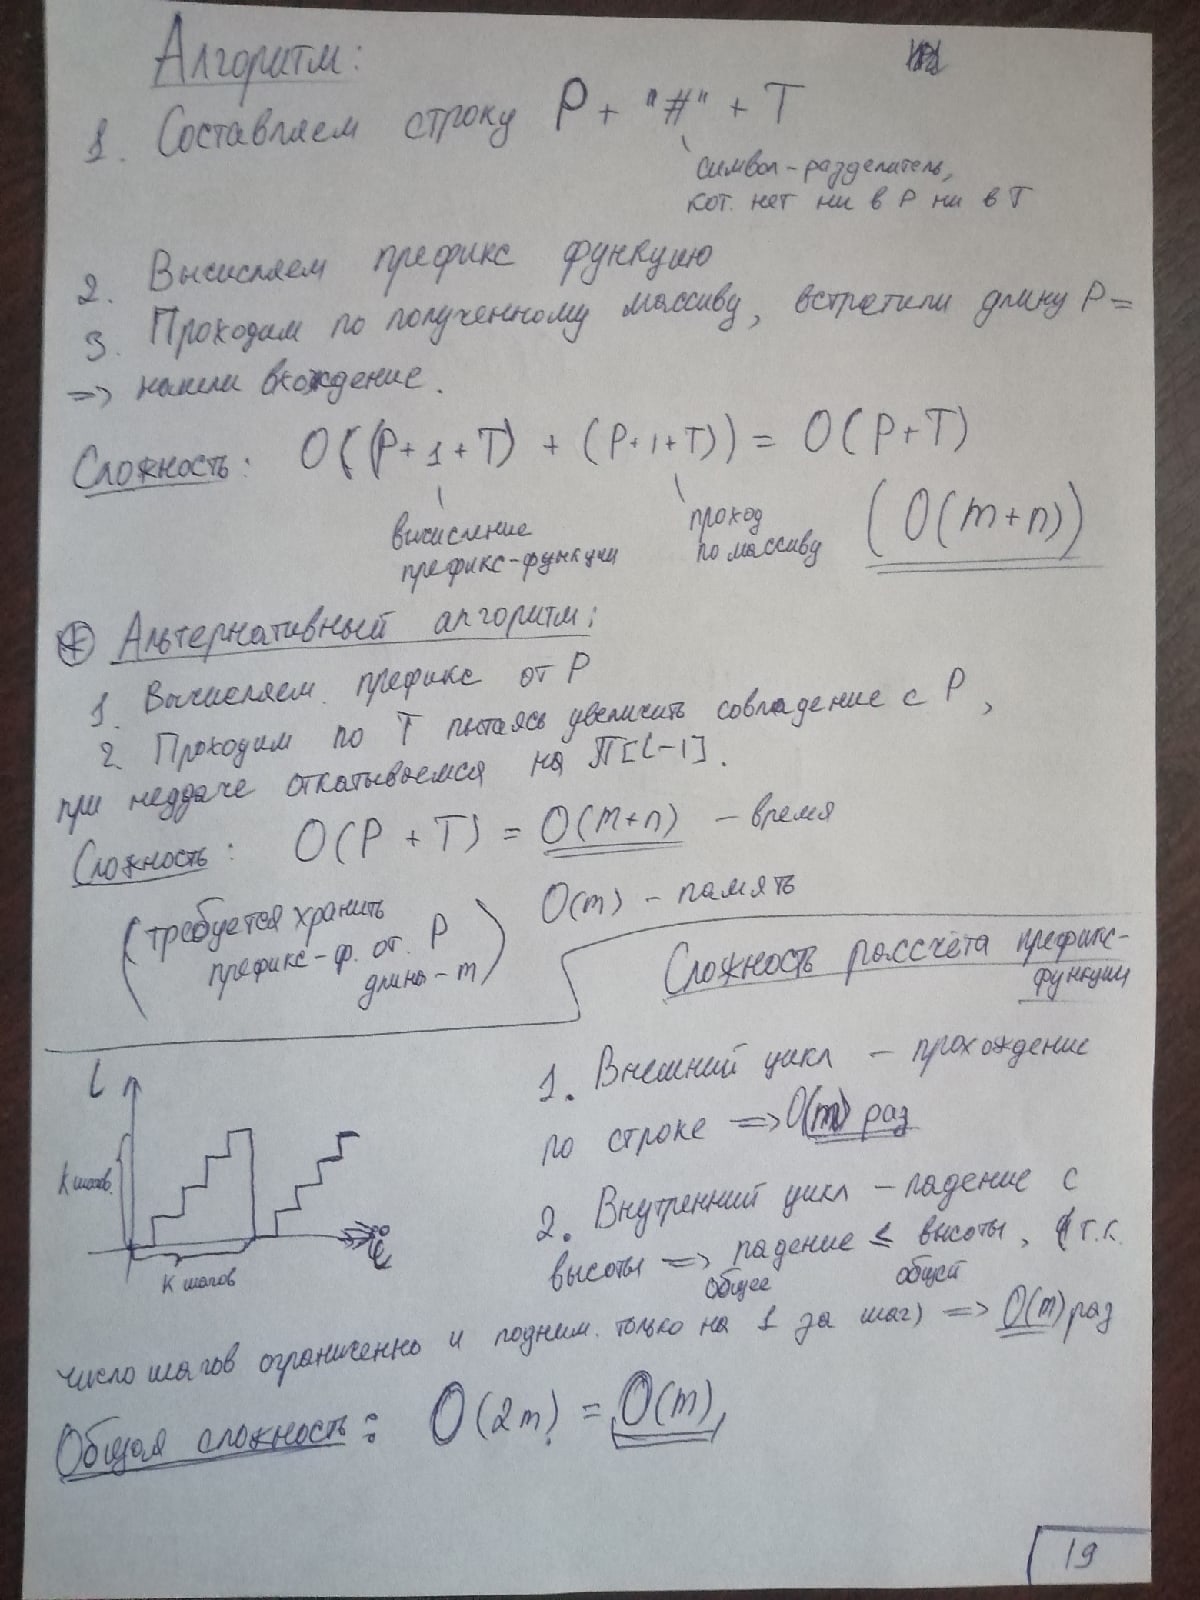 Алгоритм:
1. Составляем строку P + "#" + T
символ-разделитель,
кот. нет ни в P ни в T
2. Вычисляем префикс функцию
3. Проходим по полученному массиву, встретили длину P =
=> нашли вхождение.
Сложность: O((P+1+T) + (P+1+T)) = O(P+T)
вычисление
префикс-функции
проход
по массиву
(O(m+n))
* Альтернативный алгоритм:
1. Вычисляем префикс от P
2. Проходим по T пытаясь увеличить совпадение с P,
при неудаче откатываемся на П[l-1].
Сложность: O(P + T) = O(m+n) - время
O(m) - память
(требуется хранить
префикс-ф. от. P
длины - m)
Сложность рассчёта префикс-
функции
l
K шагов.
K шагов
i
1. Внешний цикл - прохождение
по строке => O(m) раз
2. Внутренний цикл - падение с
высоты => падение ≤ высоты, (т.к.
общее общей
число шагов ограниченно и подним. только на 1 за шаг) => O(m) раз
Общая сложность: O(2m) = O(m)
19